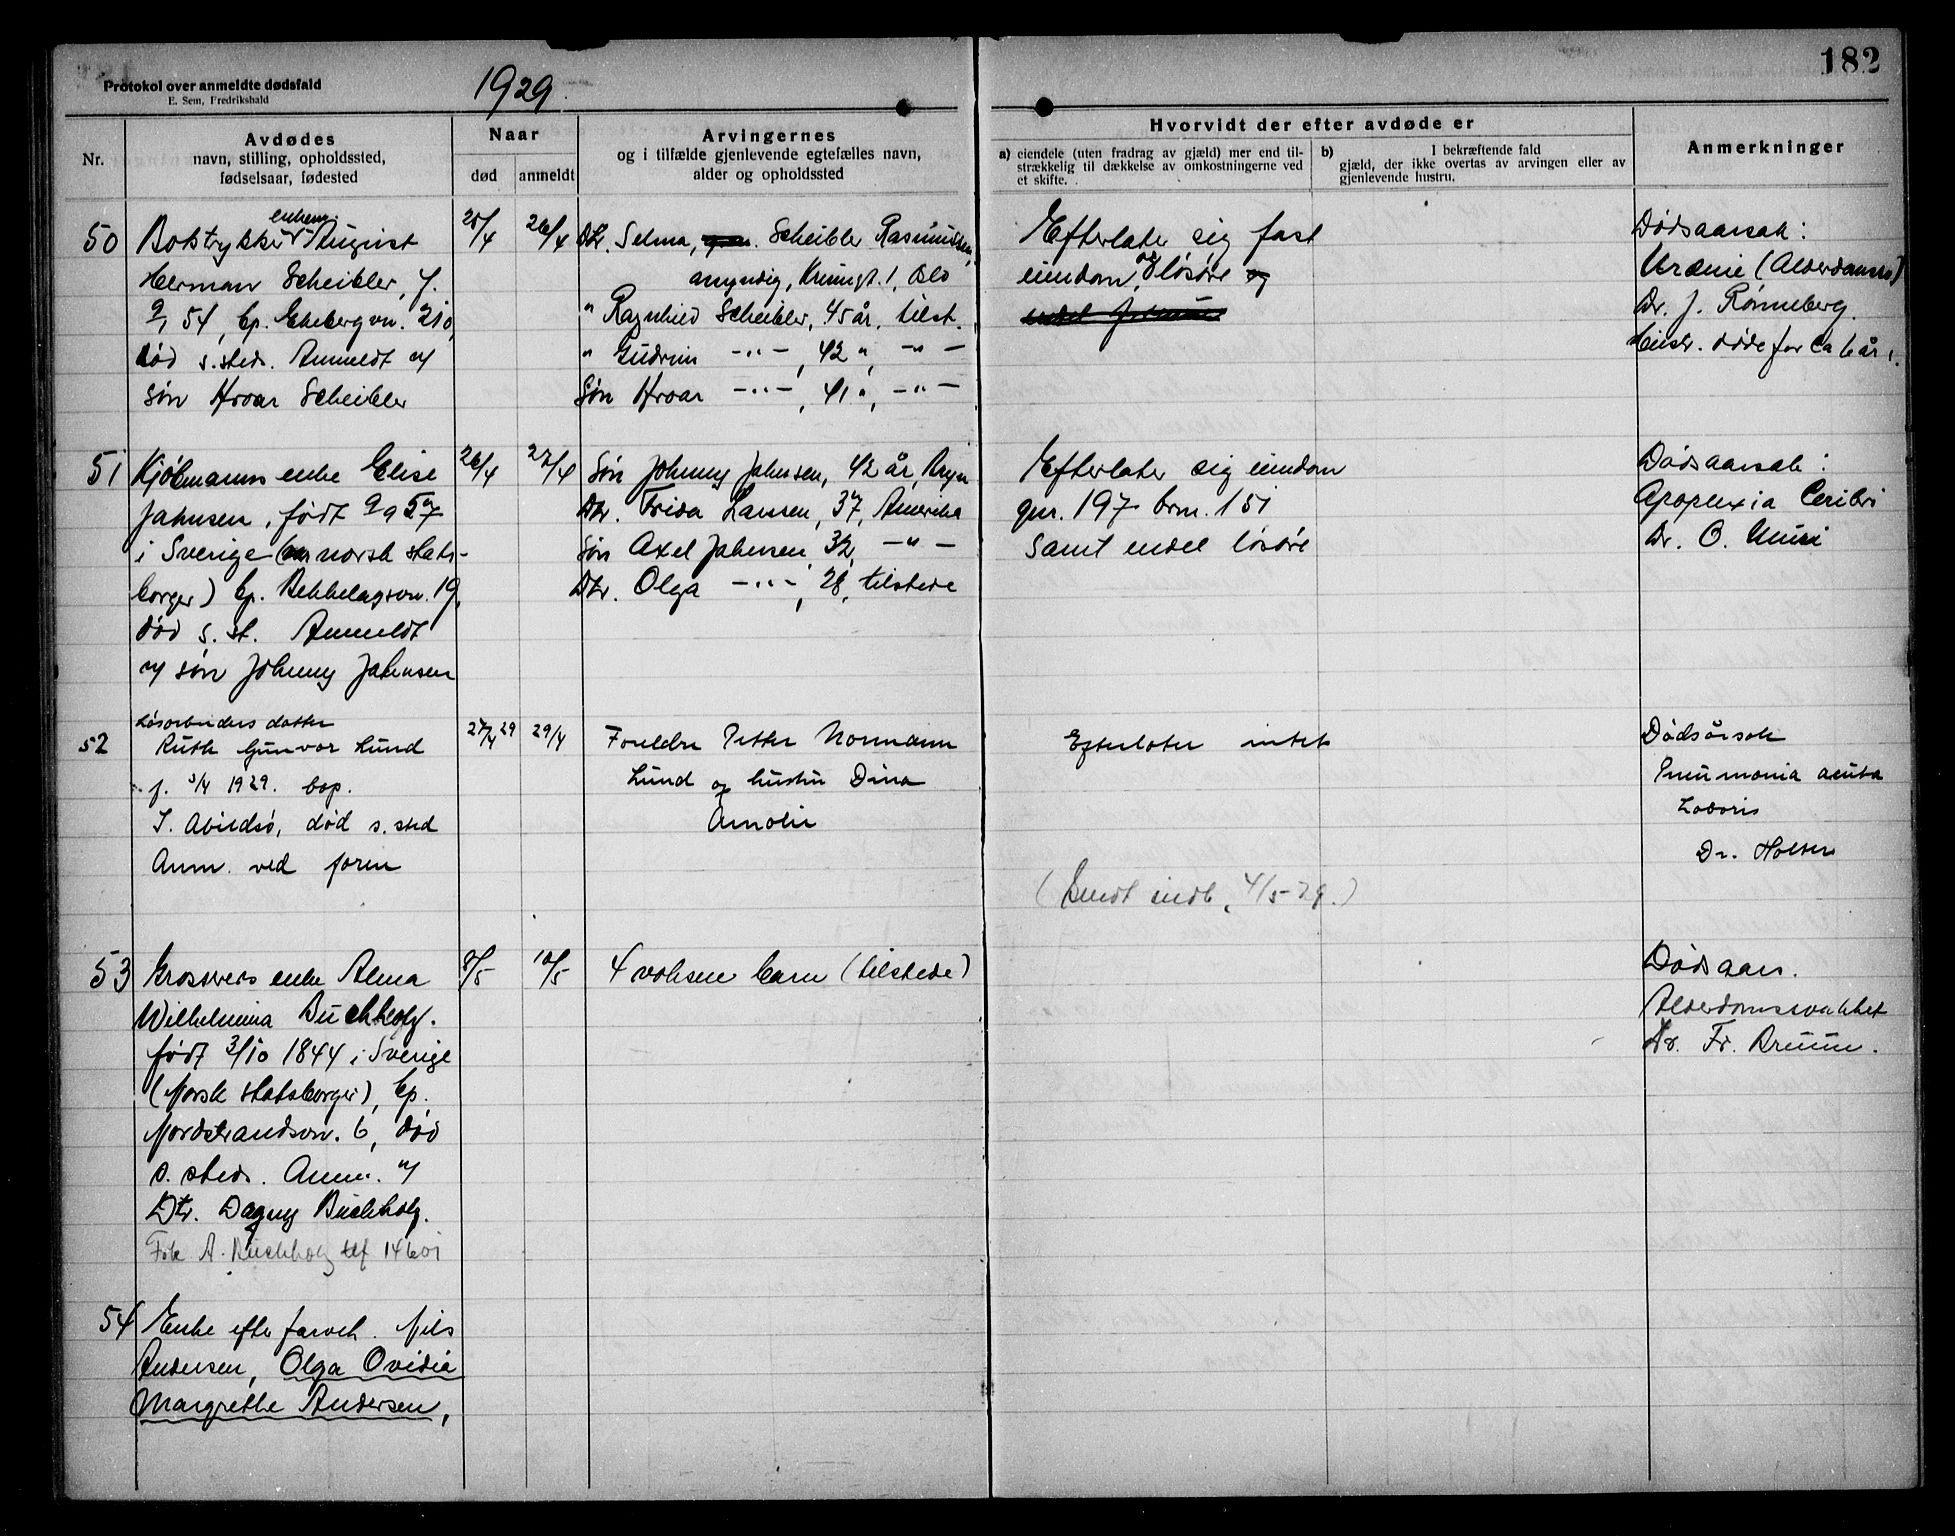 182
Protokol over anmeldte dødsfald
E. Sem, Fredrikshald
1929
Nr.
Avdødes
navn, stilling, opholdssted,
fødselsaar, fødested
Naar
død
anmeldt
Arvingernes
og i tilfælde gjenlevende egtefælles navn,
alder og opholdssted
Hvorvidt der efter avdøde er
a) eiendele (uten fradrag av gjæld) mer end til-
strækkelig til dækkelse av omkostningerne ved
et skifte.
b) I bekræftende fald
gjæld, der ikke overtas av arvingen eller av
gjenlevende hustru.
Anmerkninger
50
enkem.
Boktrykker August
Herman Scheibler, f.
54, bp. Ekebergvn. 210,
død s. sted. Anmeldt v/
søn Hroar Scheibler
26/4
Dtr. Selma, Scheibler Rasmussen,
umyndig, 1, Oslo
" Ragnhild Scheibler, 45 år, tilst.
" Gudrun -"-, 42 ", -"-
Søn Hroar -"-, 41 ", -"-
Efterlater sig fast
eiendom, og løsøre og
Dødsaarsak:
Uræmie
Dr. J. Rønneberg.
Hustr. døde for ca 6 år.
51
Kjøbmanns enke Elise
Johnsen, født
i Sverige (norsk stats-
borger) bp. Bekkelagsvn. 19,
død s. st. Anmeldt
v/ søn Johnny Johnsen
26/4
27/4
Søn Johnny Johnsen, 42 år,
Dtr. Frida Larsen, 37, Amerika
Søn Axel Johnsen, 32, -"-
Dtr. Olga -"-, 28, tilstede
Efterlater sig eiendom
gnr. 197 brn. 151
samt endel løsøre
Dødsaarsak:
Apoplexia Cerebri
Dr. O.
52
Løsarbeiders datter
Ruth Gunvor Lund
f. 3/4 1929. bop.
Abildsø, død s. sted
Anm. ved foren
27/4 29
29/4
Foreldre Petter Normann
Lund og hustru Dina
Amalie
Efterlater intet
Dødsårsak
Pneumonia acuta
Dr. Holter
(Sendt indb. 4/5-29.)
53
Grosserers enke Alma
Wilhelmina Buchholz.
født 3/10 1844 i Sverige
(Norsk statsborger), bp.
Nordstrandsvn. 6, død
s. sted. Anm. v/
Dtr. Dagny Buchholz.
A. Buchholz tlf 14601
8/5
10/5
4 voksne barn (tilstede)
Dødsaars.
Alderdomssvakhet
Dr. Fr. Bruun.
54
Enke efter farveh. Nils
Andersen, Olga Ovidia
Margrethe Andersen,